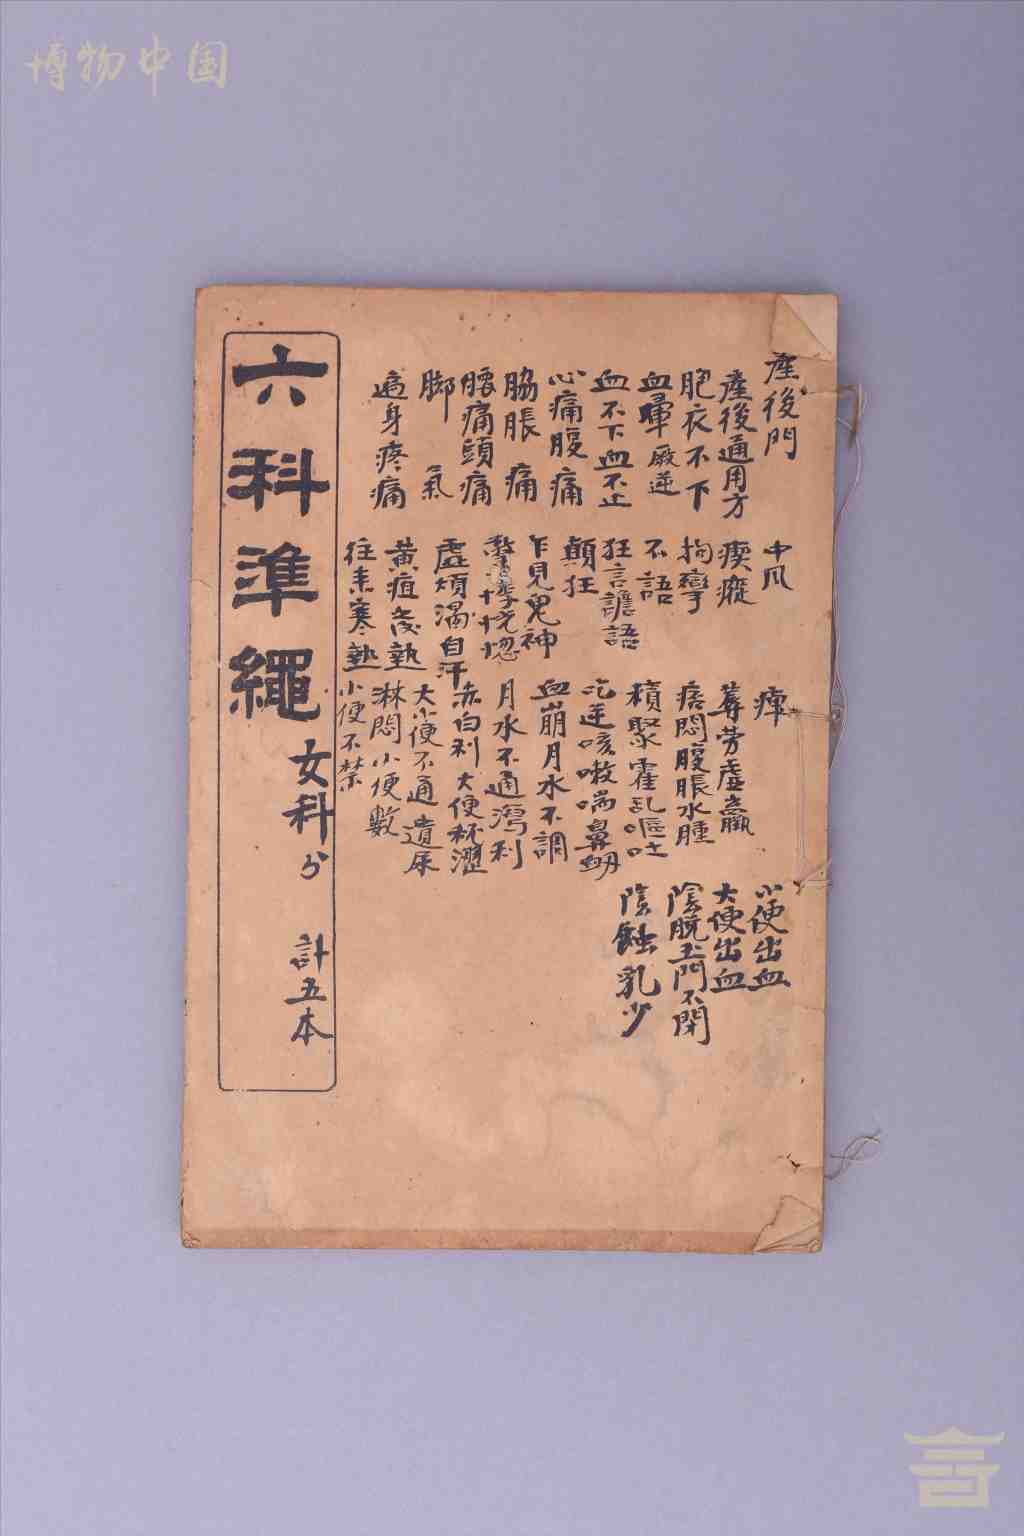 博物中国
六科準繩
女科分
計五本
產後門
產後通用方
胞衣不下
血暈厥逆
血不下血不止
心痛腹痛
脇脹痛
腰痛頭痛
脚氣
遍身疼痛
中風
瘈瘲
拘攣
不語
狂言譫語
顛狂
乍見鬼神
驚悸恍惚
虛煩渴自汗
黃疸發熱
往來寒熱
痺
蓐劳虛羸
痞悶腹脹水腫
積聚霍乱嘔吐
吃逆咳嗽喘鼻衂
血崩月水不調
月水不通瀉利
赤白利大便秘澀
大小便不通遺尿
淋悶小便數
小便不禁
小便出血
大便出血
陰脫玉門不閉
陰蝕乳少